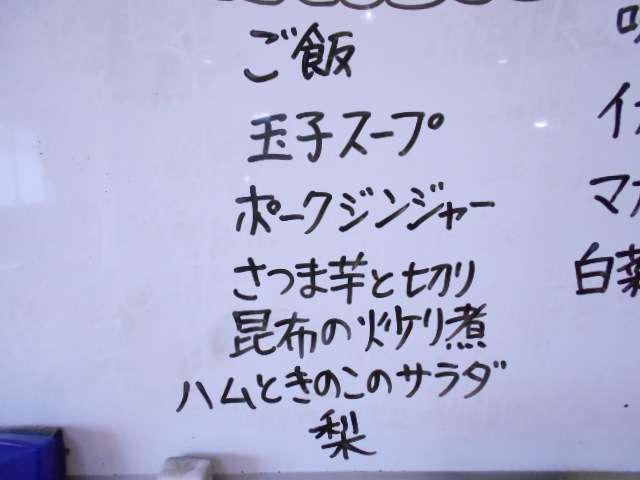 ご飯
玉子スープ
ポークジンジャー
さつま芋と切り
昆布の炒り煮
ハムときのこのサラダ
梨
マカ
白菜